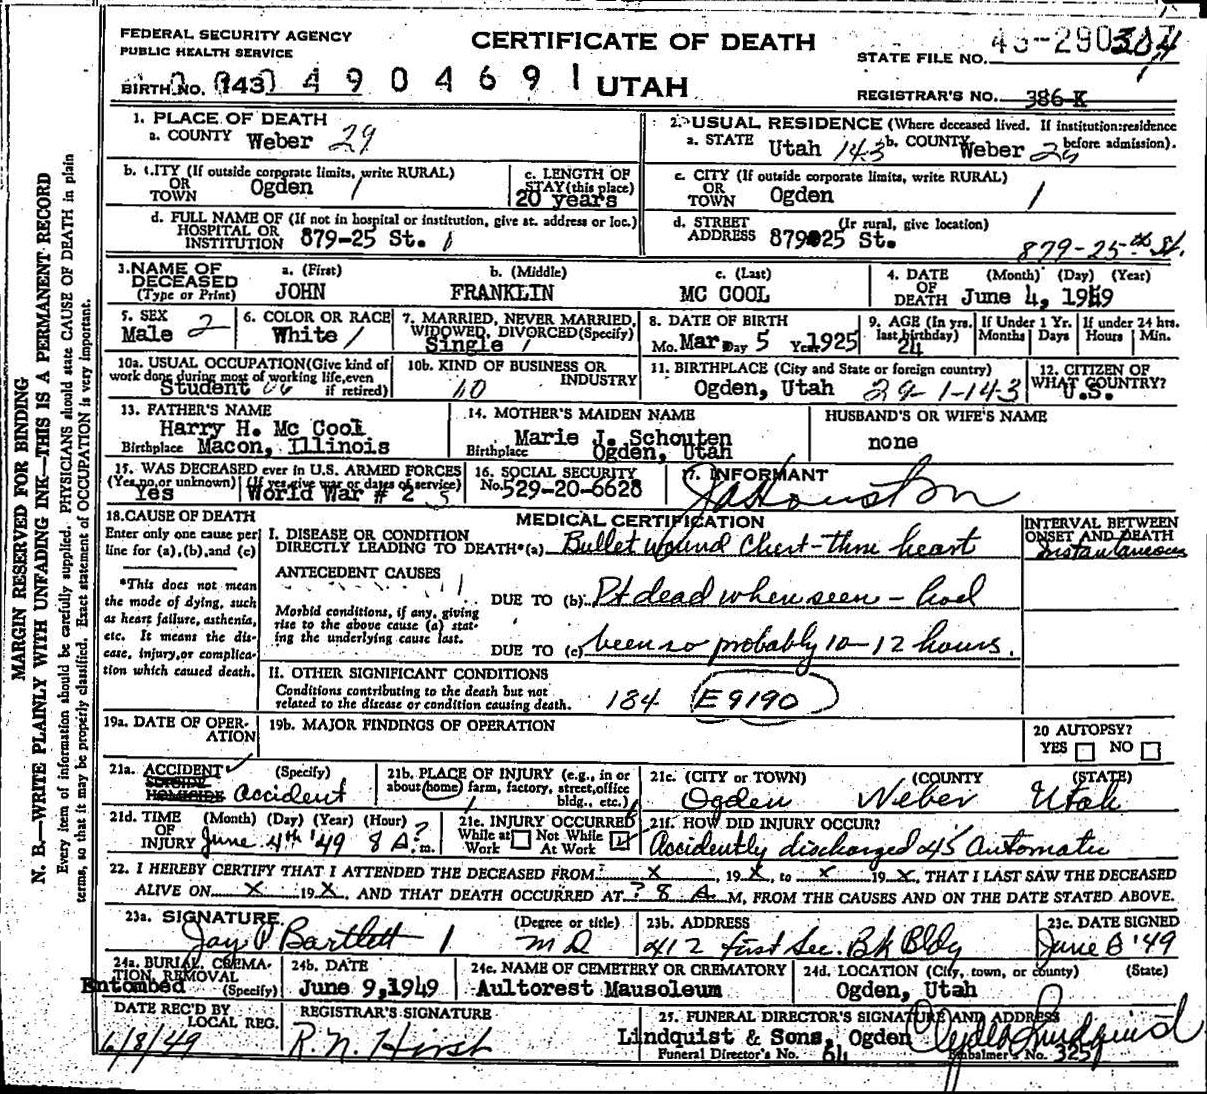 FEDERAL SECURITY AGENCY
PUBLIC HEALTH SERVICE
CERTIFICATE OF DEATH
STATE FILE NO.
BIRTH NO. 143 4 9 0 4 6 9 1 UTAH
REGISTRAR'S NO. 386-K
1. PLACE OF DEATH
a. COUNTY Weber 29
2. USUAL RESIDENCE (Where deceased lived. If institution:residence before admission).
a. STATE Utah 143 b. COUNTY Weber 29
b. CITY (If outside corporate limits, write RURAL) OR TOWN Ogden 1
c. LENGTH OF STAY (this place) 20 years
c. CITY (If outside corporate limits, write RURAL) OR TOWN Ogden 1
d. FULL NAME OF (If not in hospital or institution, give st. address or loc.) HOSPITAL OR INSTITUTION 879-25 St. 1
d. STREET ADDRESS (If rural, give location) 879 25 St.
879-25-th St.
3. NAME OF DECEASED (Type or Print)
a. (First) JOHN
b. (Middle) FRANKLIN
c. (Last) MC COOL
4. DATE OF DEATH (Month) (Day) (Year) June 4, 1949
5. SEX Male 2
6. COLOR OR RACE White 1
7. MARRIED, NEVER MARRIED, WIDOWED, DIVORCED (Specify) Single 1
8. DATE OF BIRTH Mo. Mar Day 5 Yr. 1925
9. AGE (In yrs. last birthday) 24
If Under 1 Yr. Months Days
If under 24 hrs. Hours Min.
10a. USUAL OCCUPATION (Give kind of work done during most of working life, even if retired) Student
10b. KIND OF BUSINESS OR INDUSTRY
11. BIRTHPLACE (City and State or foreign country) Ogden, Utah 29-1-143
12. CITIZEN OF WHAT COUNTRY? U.S.
13. FATHER'S NAME Harry H. Mc Cool
Birthplace Macon, Illinois
14. MOTHER'S MAIDEN NAME Marie J. Schouten
Birthplace Ogden, Utah
HUSBAND'S OR WIFE'S NAME
none
15. WAS DECEASED ever in U.S. ARMED FORCES
(Yes, no or unknown) (If yes, give war or dates of service)
Yes World War # 2 5
16. SOCIAL SECURITY No. 529-20-6628
17. INFORMANT
18. CAUSE OF DEATH
Enter only one cause per line for (a), (b), and (c)
*This does not mean the mode of dying, such as heart failure, asthenia, etc. It means the disease, injury, or complication which caused death.
MEDICAL CERTIFICATION
INTERVAL BETWEEN ONSET AND DEATH
I. DISEASE OR CONDITION DIRECTLY LEADING TO DEATH* (a) Bullet wound Chest - thru heart
Instantaneous
ANTECEDENT CAUSES
Morbid conditions, if any, giving rise to the above cause (a) stating the underlying cause last.
DUE TO (b) Pt dead when seen - had
DUE TO (c) been so probably 10-12 hours.
II. OTHER SIGNIFICANT CONDITIONS
Conditions contributing to the death but not related to the disease or condition causing death.
184 E9190
19a. DATE OF OPERATION
19b. MAJOR FINDINGS OF OPERATION
20 AUTOPSY?
YES NO
21a. ACCIDENT SUICIDE HOMICIDE (Specify) Accident
21b. PLACE OF INJURY (e.g., in or about home, farm, factory, street, office bldg., etc.)
21c. (CITY or TOWN) (COUNTY (STATE)
Ogden Weber Utah
21d. TIME OF INJURY (Month) (Day) (Year) (Hour) June 4th '49 8 A? m.
21e. INJURY OCCURRED
While at Work Not While At Work
21f. HOW DID INJURY OCCUR?
Accidently discharged 45 Automatic
22. I HEREBY CERTIFY THAT I ATTENDED THE DECEASED FROM X, 19 X, to X 19 X, THAT I LAST SAW THE DECEASED
ALIVE ON X 19 X, AND THAT DEATH OCCURRED AT ? 8 A M, FROM THE CAUSES AND ON THE DATE STATED ABOVE.
23a. SIGNATURE (Degree or title)
Jay P Bartlett MD
23b. ADDRESS
412 First Sec. Bk Bldg
23c. DATE SIGNED
June 8 '49
24a. BURIAL, CREMATION, REMOVAL (Specify) Entombed
24b. DATE
June 9, 1949
24c. NAME OF CEMETERY OR CREMATORY
Aultorest Mausoleum
24d. LOCATION (City, town, or county) (State)
Ogden, Utah
DATE REC'D BY LOCAL REG.
6/8/49
REGISTRAR'S SIGNATURE
R. N. Hirst
25. FUNERAL DIRECTOR'S SIGNATURE AND ADDRESS
Lindquist & Sons, Ogden
Funeral Director's No. 64 Embalmer's No. 325
MARGIN RESERVED FOR BINDING
N. B.—WRITE PLAINLY WITH UNFADING INK—THIS IS A PERMANENT RECORD
Every item of information should be carefully supplied. PHYSICIANS should state CAUSE OF DEATH in plain
terms, so that it may be properly classified. Exact statement of OCCUPATION is very important.